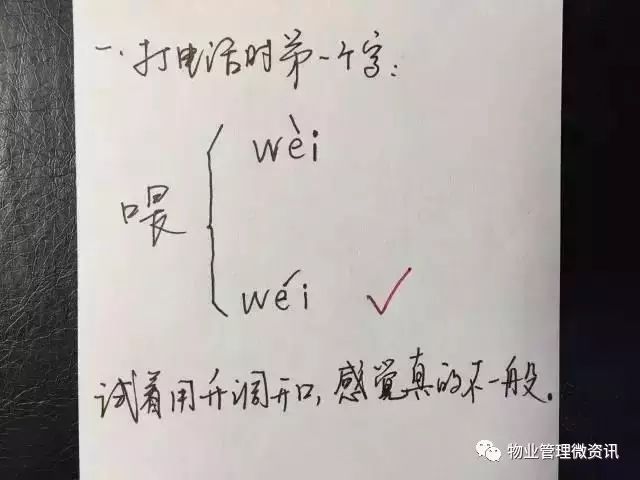 一.打电话时第一个字:
wèi
喂
wéi ✓
试着用升调开口,感觉真的不一般.
物业管理微资讯